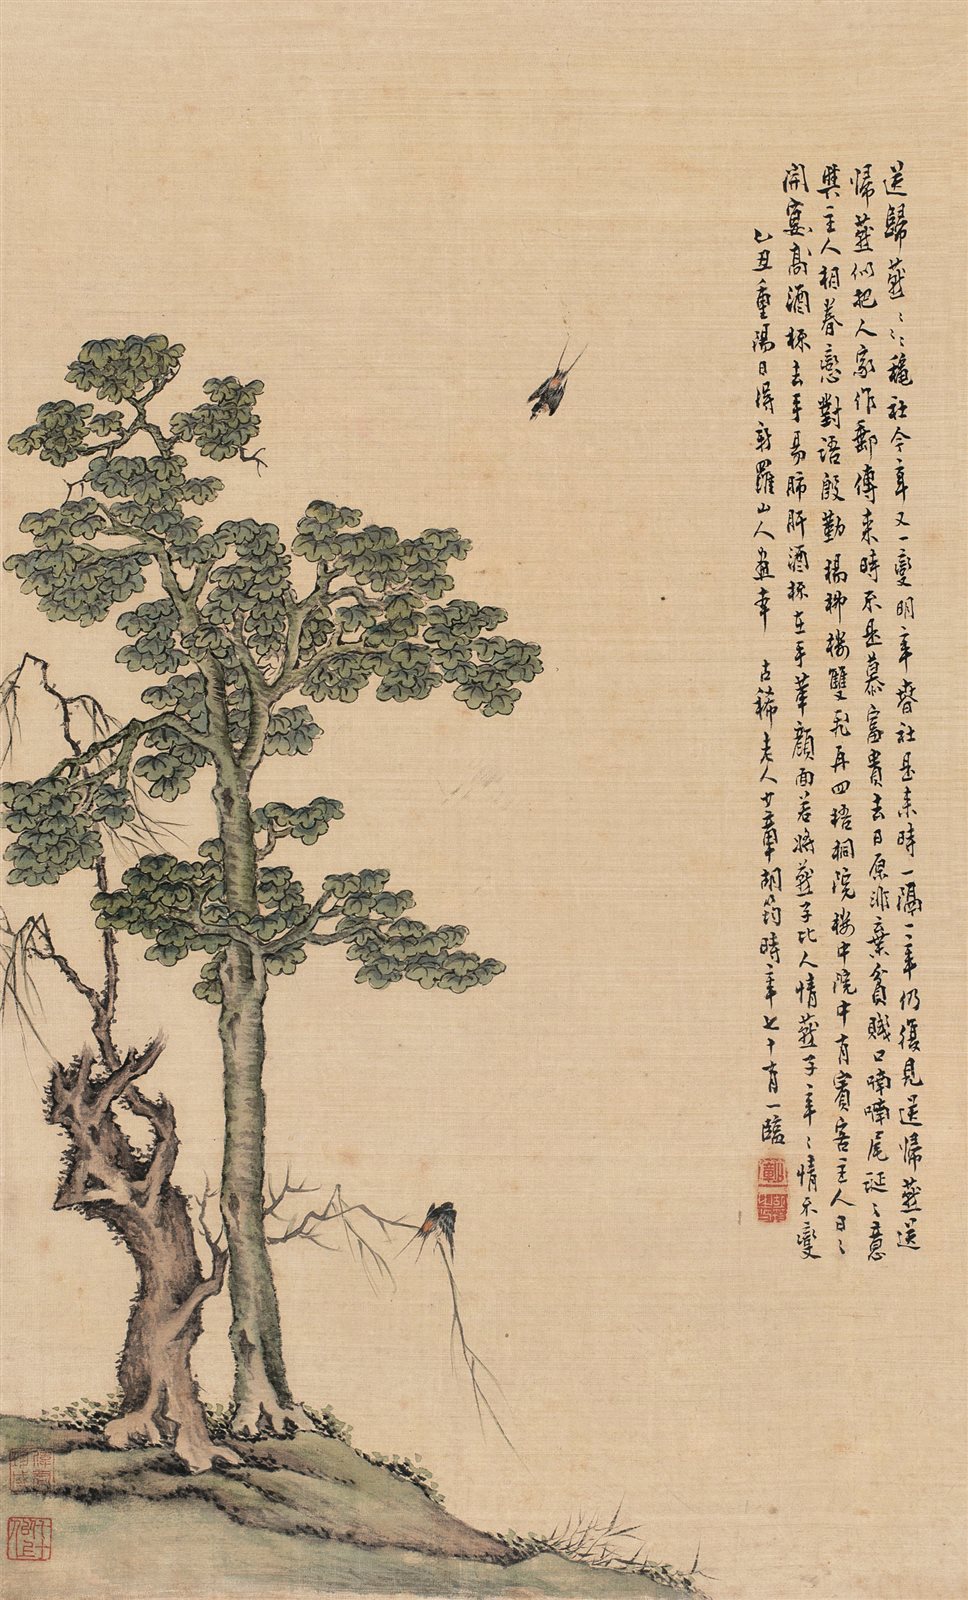 送歸燕燕燕穐社今年又一變明年春社是来時一隔二年仍復見送帰燕送
帰燕似把人家作郵傳来時不是慕富貴去日原非棄貧賤口喃喃尾涎涎意
與主人相眷戀對語殷勤楊柳樓雙飛再四梧桐院樓中院中有賓客主人日日
開宴高酒杯去手易肺肝酒杯在手華顔面若將燕子比人情燕子年年情不變
乙丑重陽日得新羅山人畫幸 古稀老人廿章胡筠時年七十有一臨